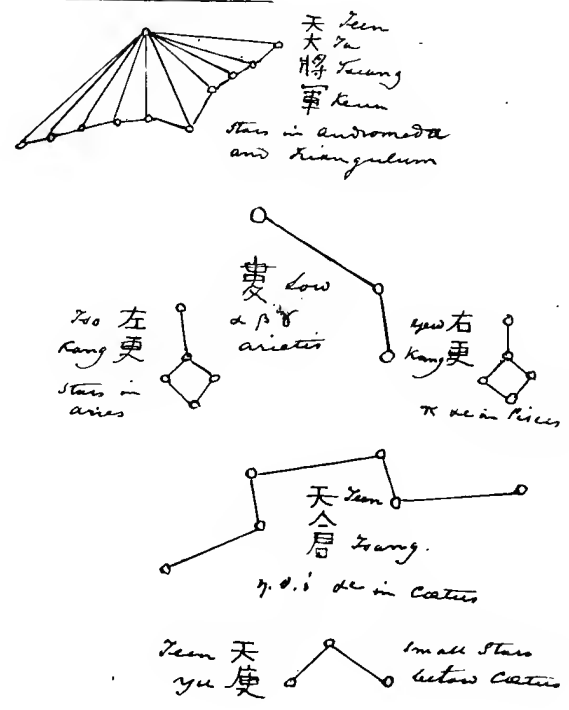 天 Teen
大 Ta
將 Tseang
軍 Keun
Stars in Andromeda
and Triangulum
婁 Low
α β γ
arietis
Tso 左
Kang 更
Stars in
aries
Yew 右
Kang 更
π &c in Pisces
天 Teen
倉 Tsang.
η. θ. ι &c in Cœtus
Teen 天
Yu 庾
Small Stars
below Cœtus